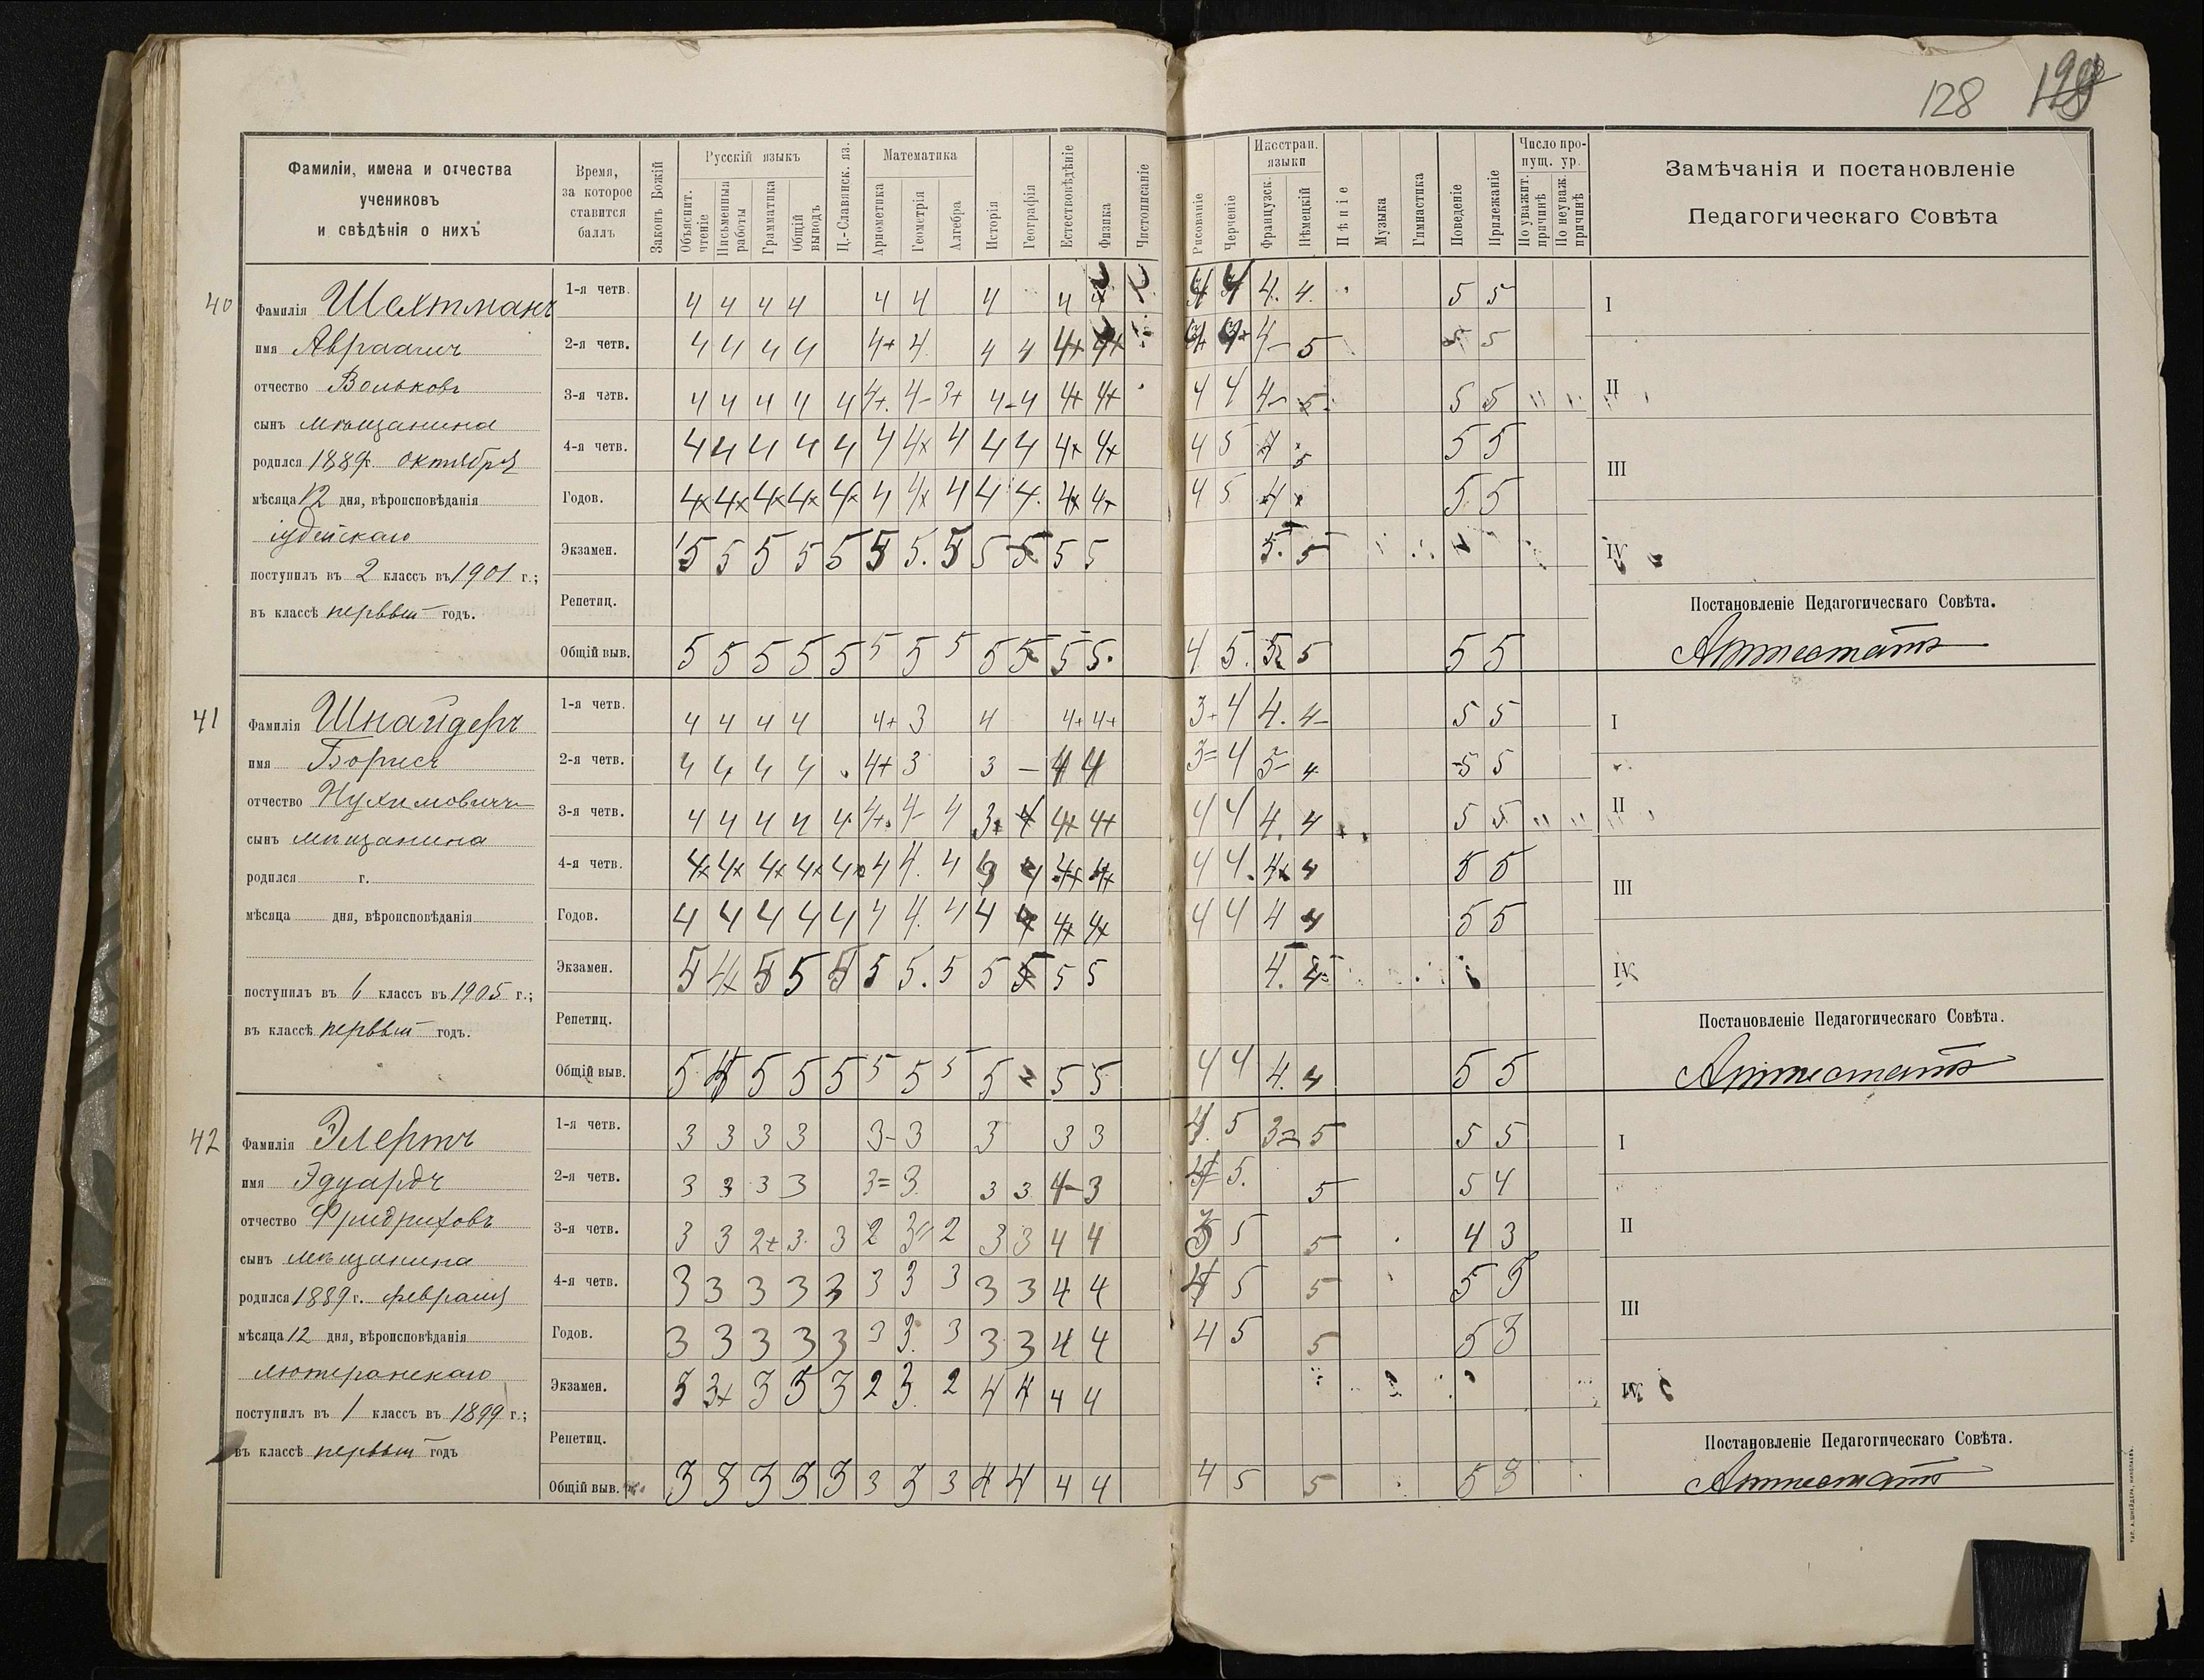 128
Фамиліи, имена и отчества
учениковъ
и свѣдѣнія о нихъ
Время,
за которое
ставится
баллъ
Законъ Божій
Русскій языкъ
Объяснит. чтеніе
Письменныя работы
Грамматика
Общій выводъ
Ц.-Славянск. яз.
Математика
Ариѳметика
Геометрія
Алгебра
Исторія
Географія
Естествовѣдѣніе
Физика
Чистописаніе
Рисованіе
Черченіе
Иностран. языки
Французск.
Нѣмецкій
Пѣніе
Музыка
Гимнастика
Поведеніе
Прилежаніе
Число пропущ. ур.
По уважит. причинѣ
По неуваж. причинѣ
Замѣчанія и постановленіе
Педагогическаго Совѣта
40
Фамилія Шехтманъ
имя Авраамъ
отчество Вольковъ
сынъ мѣщанина
родился 1889 г. октября
мѣсяца 12 дня, вѣроисповѣданія
іудейскаго
поступилъ въ 2 классъ въ 1901 г.;
въ классѣ первый годъ.
1-я четв. 4 4 4 4 4 4 4 4 4 4 4. 4. 5 5
I
2-я четв. 4 4 4 4 4+ 4 4 4 4+ 4+ 4- 5 5 5
3-я четв. 4 4 4 4 4 4+. 4- 3+ 4- 4 4+ 4+ 4 4 4- 5 5 5
II
4-я четв. 4 4 4 4 4 4 4+ 4 4 4 4+ 4+ 4 5 4 5 5 5
III
Годов. 4+ 4+ 4+ 4+ 4+ 4 4+ 4 4 4. 4+ 4+ 4 5 4 5 5
Экзамен. 5 5 5 5 5 5 5. 5 5 5 5 5 5. 5
IV
Репетиц.
Постановленіе Педагогическаго Совѣта.
Общій выв. 5 5 5 5 5 5 5 5 5 5 5 5. 4 5. 5 5 5 5
Аттестатъ
41
Фамилія Шнайдеръ
имя Борисъ
отчество Нухимовичъ
сынъ мѣщанина
родился г.
мѣсяца дня, вѣроисповѣданія
поступилъ въ 6 классъ въ 1905 г.;
въ классѣ первый годъ.
1-я четв. 4 4 4 4 4+ 3 4 4+ 4+ 3+ 4 4. 4- 5 5
I
2-я четв. 4 4 4 4 4+ 3 3 — 4 4 3= 4 3- 4 5 5
3-я четв. 4 4 4 4 4 4+. 4- 4 3+ 4 4+ 4+ 4 4 4. 4 5 5
II
4-я четв. 4+ 4+ 4+ 4+ 4+ 4 4. 4 4 4+ 4+ 4 4. 4+ 4 5 5
III
Годов. 4 4 4 4 4 4 4. 4 4 4 4+ 4+ 4 4 4 4 5 5
Экзамен. 5 4+ 5 5 5 5 5. 5 5 5 5 5 4. 4
IV
Репетиц.
Постановленіе Педагогическаго Совѣта.
Общій выв. 5 4 5 5 5 5 5 5 5 5 5 4 4 4. 4 5 5
Аттестатъ
42
Фамилія Элертъ
имя Эдуардъ
отчество Фридриховъ
сынъ мѣщанина
родился 1889 г. февраля
мѣсяца 12 дня, вѣроисповѣданія
лютеранскаго
поступилъ въ 1 классъ въ 1899 г.;
въ классѣ первый годъ
1-я четв. 3 3 3 3 3- 3 3 3 3 4. 5 3= 5 5 5
I
2-я четв. 3 3 3 3 3= 3 3 3 4- 3 5. 5 5 4
3-я четв. 3 3 2+ 3 3 2 3= 2 3 3 4 4 3 5 5 4 3
II
4-я четв. 3 3 3 3 3 3 3 3 3 3 4 4 4 5 5 5
III
Годов. 3 3 3 3 3 3 3. 3 3 3 4 4 4 5 5 5 3
Экзамен. 3 3+ 3 3 3 2 3 2 4 4 4 4
IV
Репетиц.
Постановленіе Педагогическаго Совѣта.
Общій выв. 3 3 3 3 3 3 3 3 4 4 4 4 4 5 5 5 3
Аттестатъ